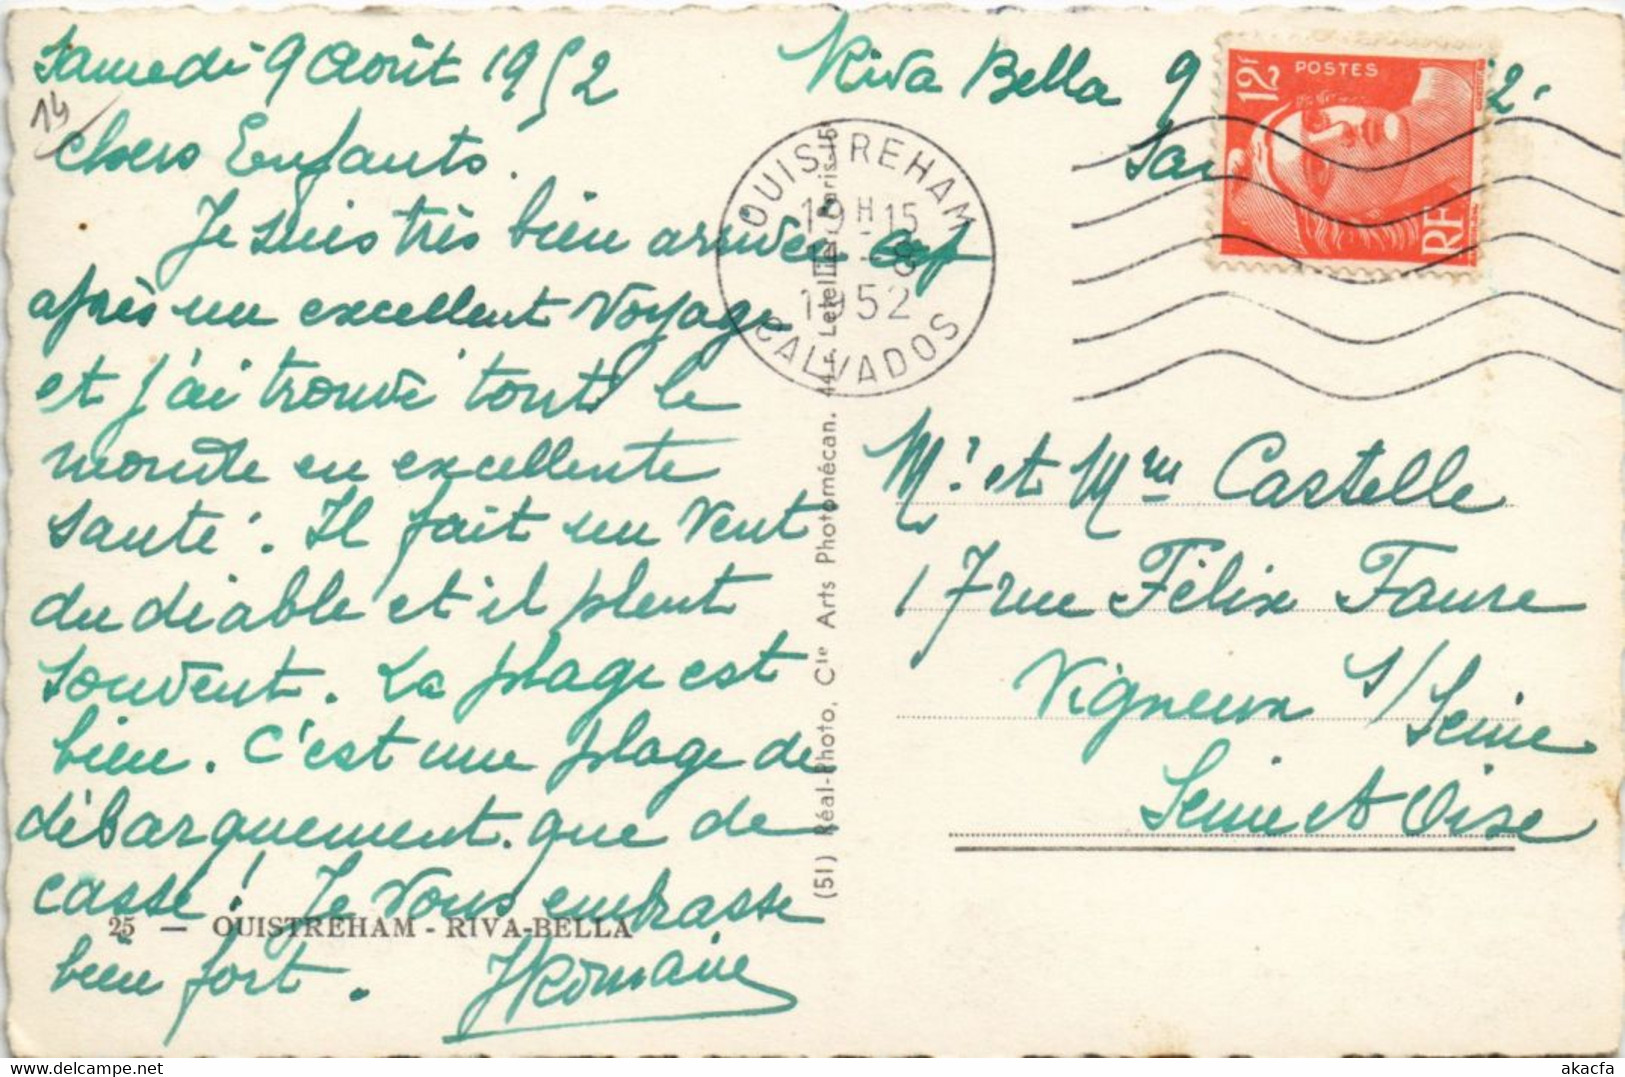 Samedi 9 Août 1952
14
chers Enfants.
Je suis très bien arrivée
après un excellent voyage
et j'ai trouvé tout le
monde en excellente
santé. Il fait un vent
du diable et il pleut
souvent. La plage est
bien. C'est une plage de
débarquement. que de
casse! Je vous embrasse
bien fort. JRomaine
25 — OUISTREHAM - RIVA-BELLA
(51) Réal-Photo, Cie Arts Photomécan. 44 r. Letellier Paris-15
Riva Bella 9 2.
OUISTREHAM
19H15
-8
1952
CALVADOS
12F
POSTES
RF
Mr et Mme Castelle
17 rue Félix Faure
Vigneux S/Seine
Seine et Oise
akacfa